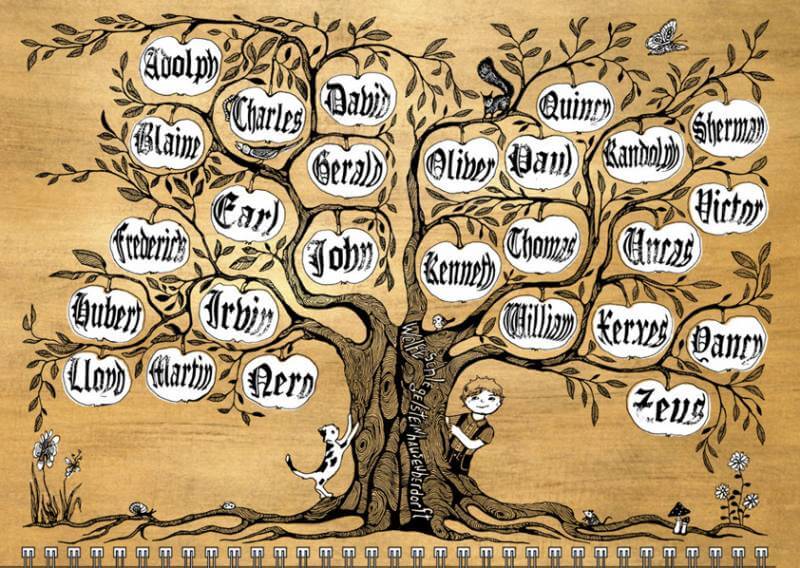 Adolph
Charles
David
Blaine
Gerald
Earl
Frederick
John
Hubert
Irvin
Lloyd
Martin
Nero
Quincy
Oliver
Paul
Randolph
Sherman
Victor
Thomas
Uncas
Kenneth
William
Xerxes
Yancy
Zeus